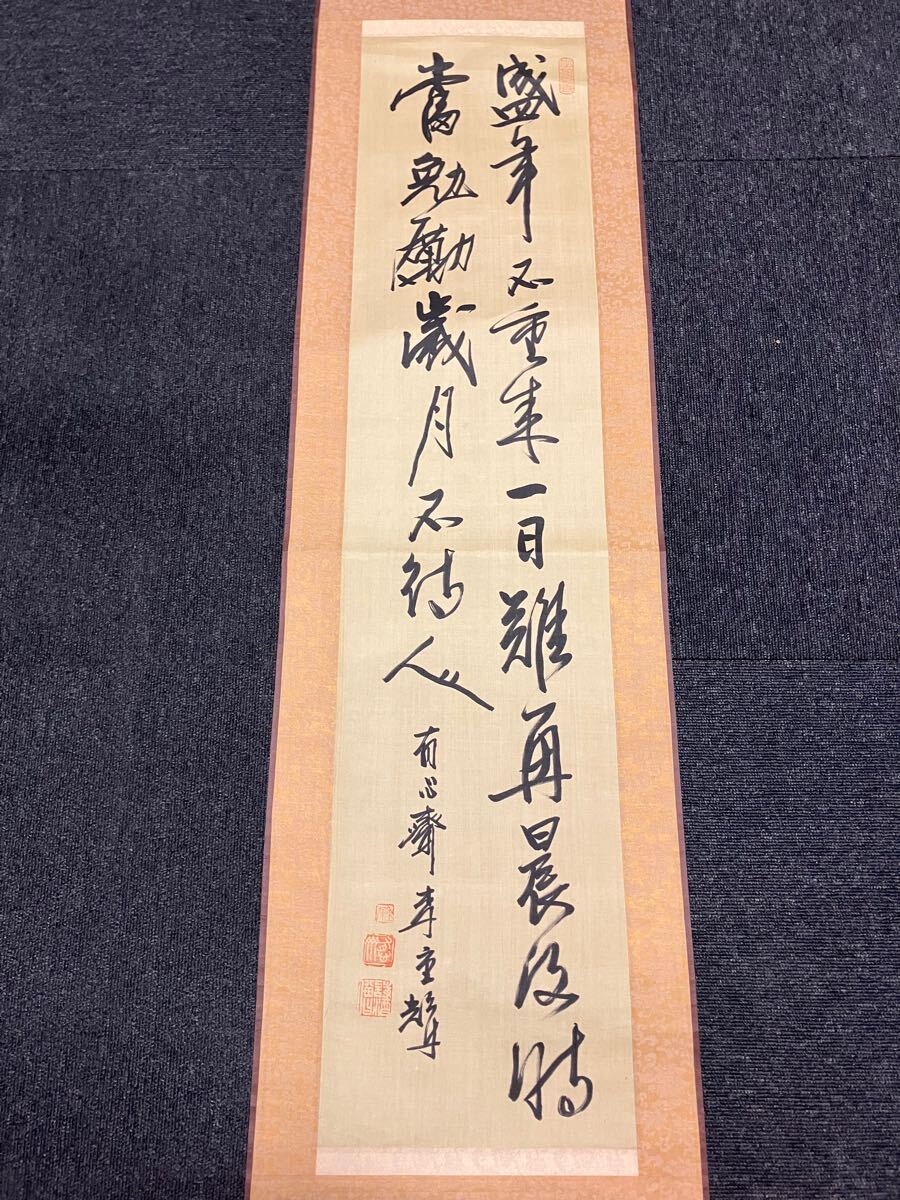 盛年不重来一日難再晨及時
當勉勵歳月不待人
有心齋李重